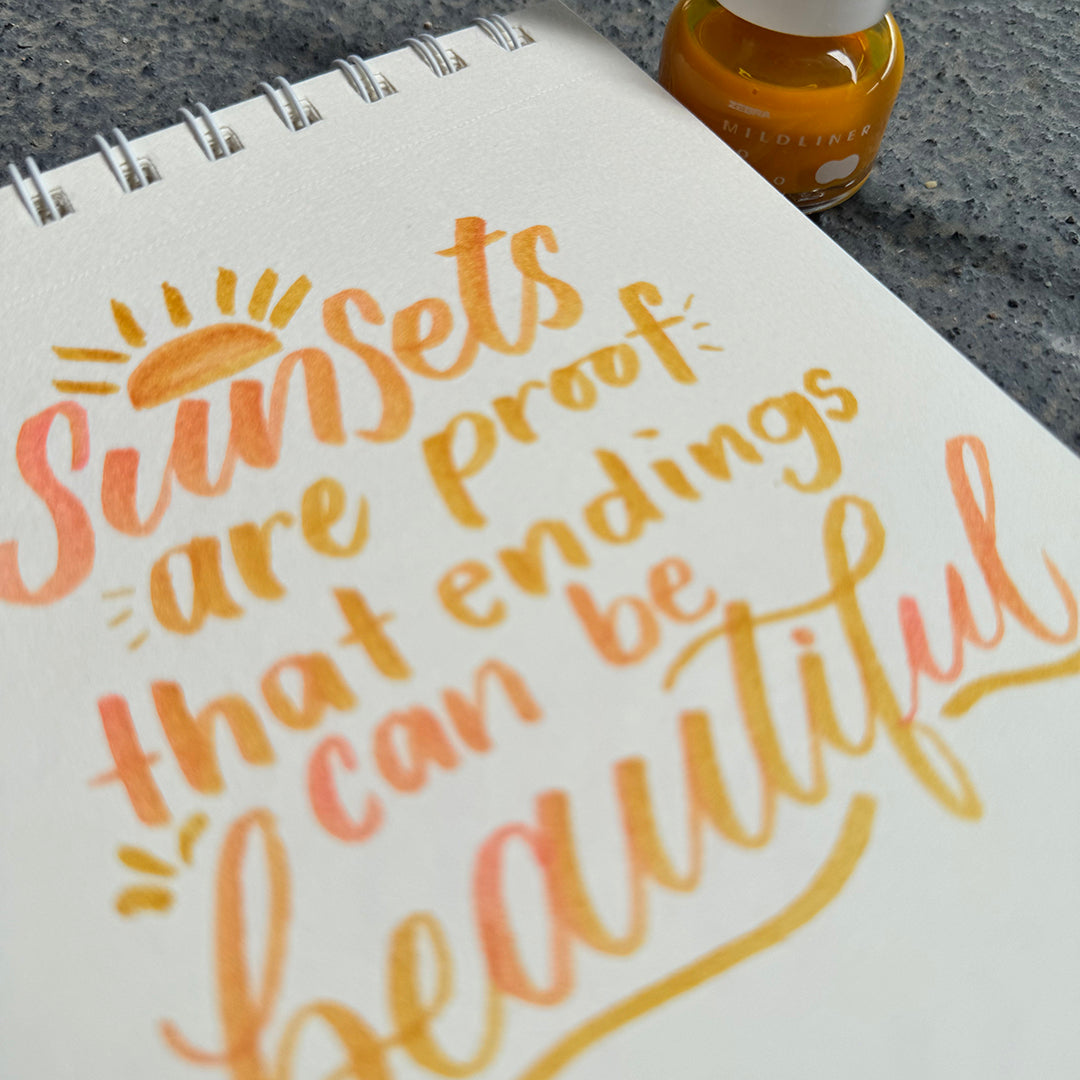 ZEBRA
MILDLINER
Sunsets
are proof
that endings
can be
beautiful